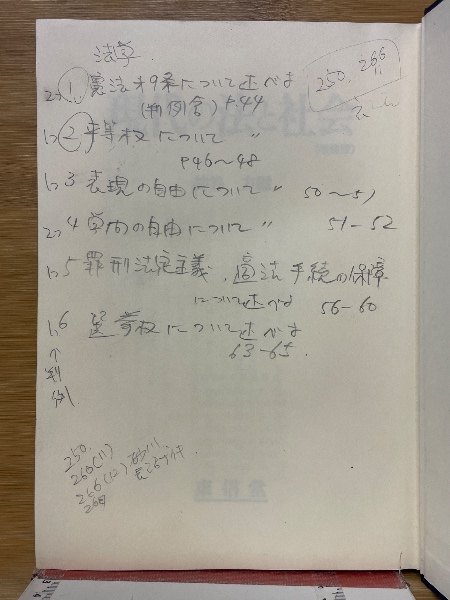 法学.
2つ 1, 憲法オ9条について述べよ
(判例含) P.44
1つ 2 平等权について 〃
P46〜48
1つ 3 表現の自由について 〃 50〜51
2つ 4 学問の自由について 〃 51-52
1つ 5 罪刑法定主義、適法手続の保障
について述べよ 56-60
1つ 6 選挙权について述べよ
63-65.
↑判例
250. 266
11
250.
266(11) 砂川
266(12) 長沼ナイキ.